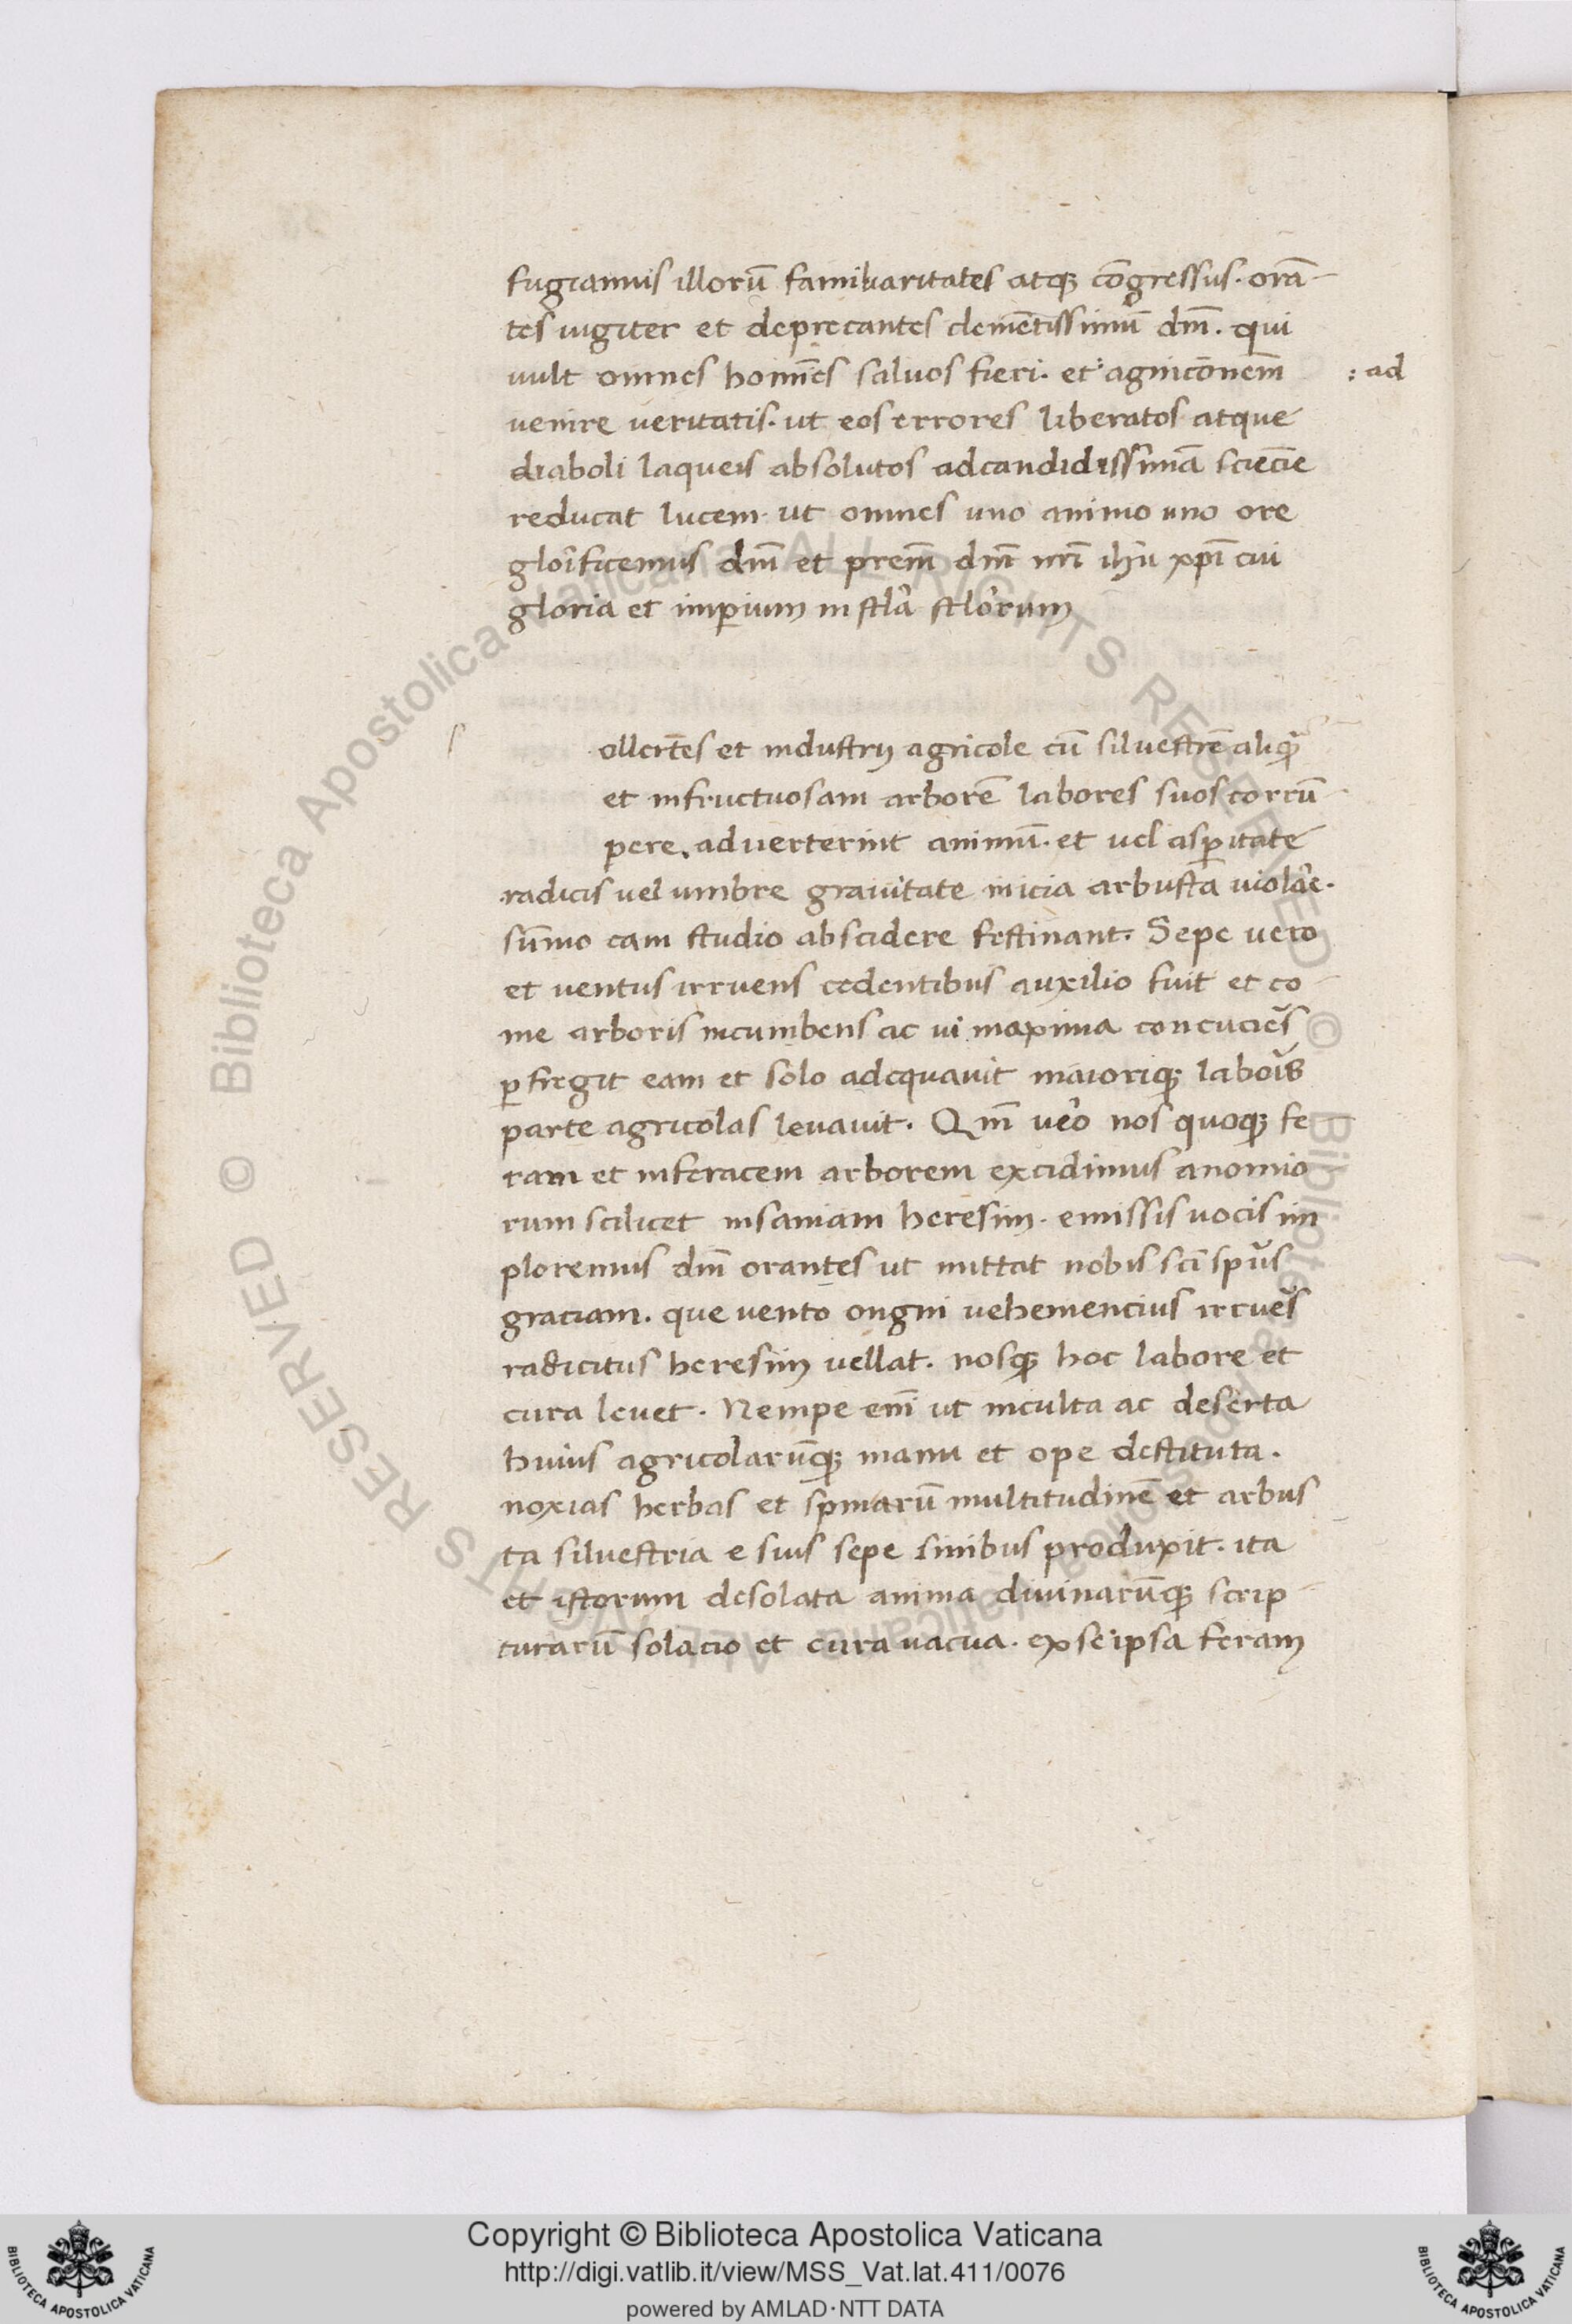 fugiamus illorū familiaritates atqȝ cōgressus. orā-
tes iugiter et deprecantes clemētissimū dm̄. qui
uult omnes homīes saluos fieri. et : agnicōnem̄
: ad
uenire ueritatis. ut eos errores liberatos atque
diaboli laqueis absolutos ad candidissimā sciēcie
reducat lucem. ut omnes uno animo uno ore
gloīficemus dm̄ et prem̄ dm̄ nrī ihū xpī cui
gloria et imꝑium in scła scłorum
s
ollertes et industrij agricole cū siluestrē aliquā
et infructuosam arborē labores suos corrū-
pere. aduerterint animū. et uel asꝑitate
radicis uel umbre grauitate inicia arbusta uiolare.
sūmo eam studio abscidere festinant. Sepe uero
et uentus irruens cedentibus auxilio fuit et co-
me arboris incumbens ac ui maxima concuciēs
ꝑfregit eam et solo adequauit maioriqȝ laboīs
parte agricolas leuauit. Qm̄ uero nos quoqȝ fe
ram et inferacem arborem excidimus anomio
rum scilicet insaniam heresim. emissis uocis im
ploremus dm̄ orantes ut mittat nobis scī spūs
graciam. que uento ongni uehemencius irruēs
radicitus heresim uellat. nosqȝ hoc labore et
cura leuet. Nempe enī ut inculta ac deserta
huius agricolarūqȝ manu et ope destituta.
noxias herbas et spinarū multitudinē et arbus
ta siluestria e suis sepe sinibus produxit. ita
et istorum desolata anima diuinarūqȝ scrip-
turarū solacio et cura uacua. ex se ipsa feram
© Biblioteca Apostolica Vaticana ALL RIGHTS RESERVED © Biblioteca Apostolica Vaticana ALL RIGHTS RESERVED
Copyright © Biblioteca Apostolica Vaticana
http://digi.vatlib.it/view/MSS_Vat.lat.411/0076
powered by AMLAD·NTT DATA
BIBLIOTECA APOSTOLICA VATICANA
BIBLIOTECA APOSTOLICA VATICANA